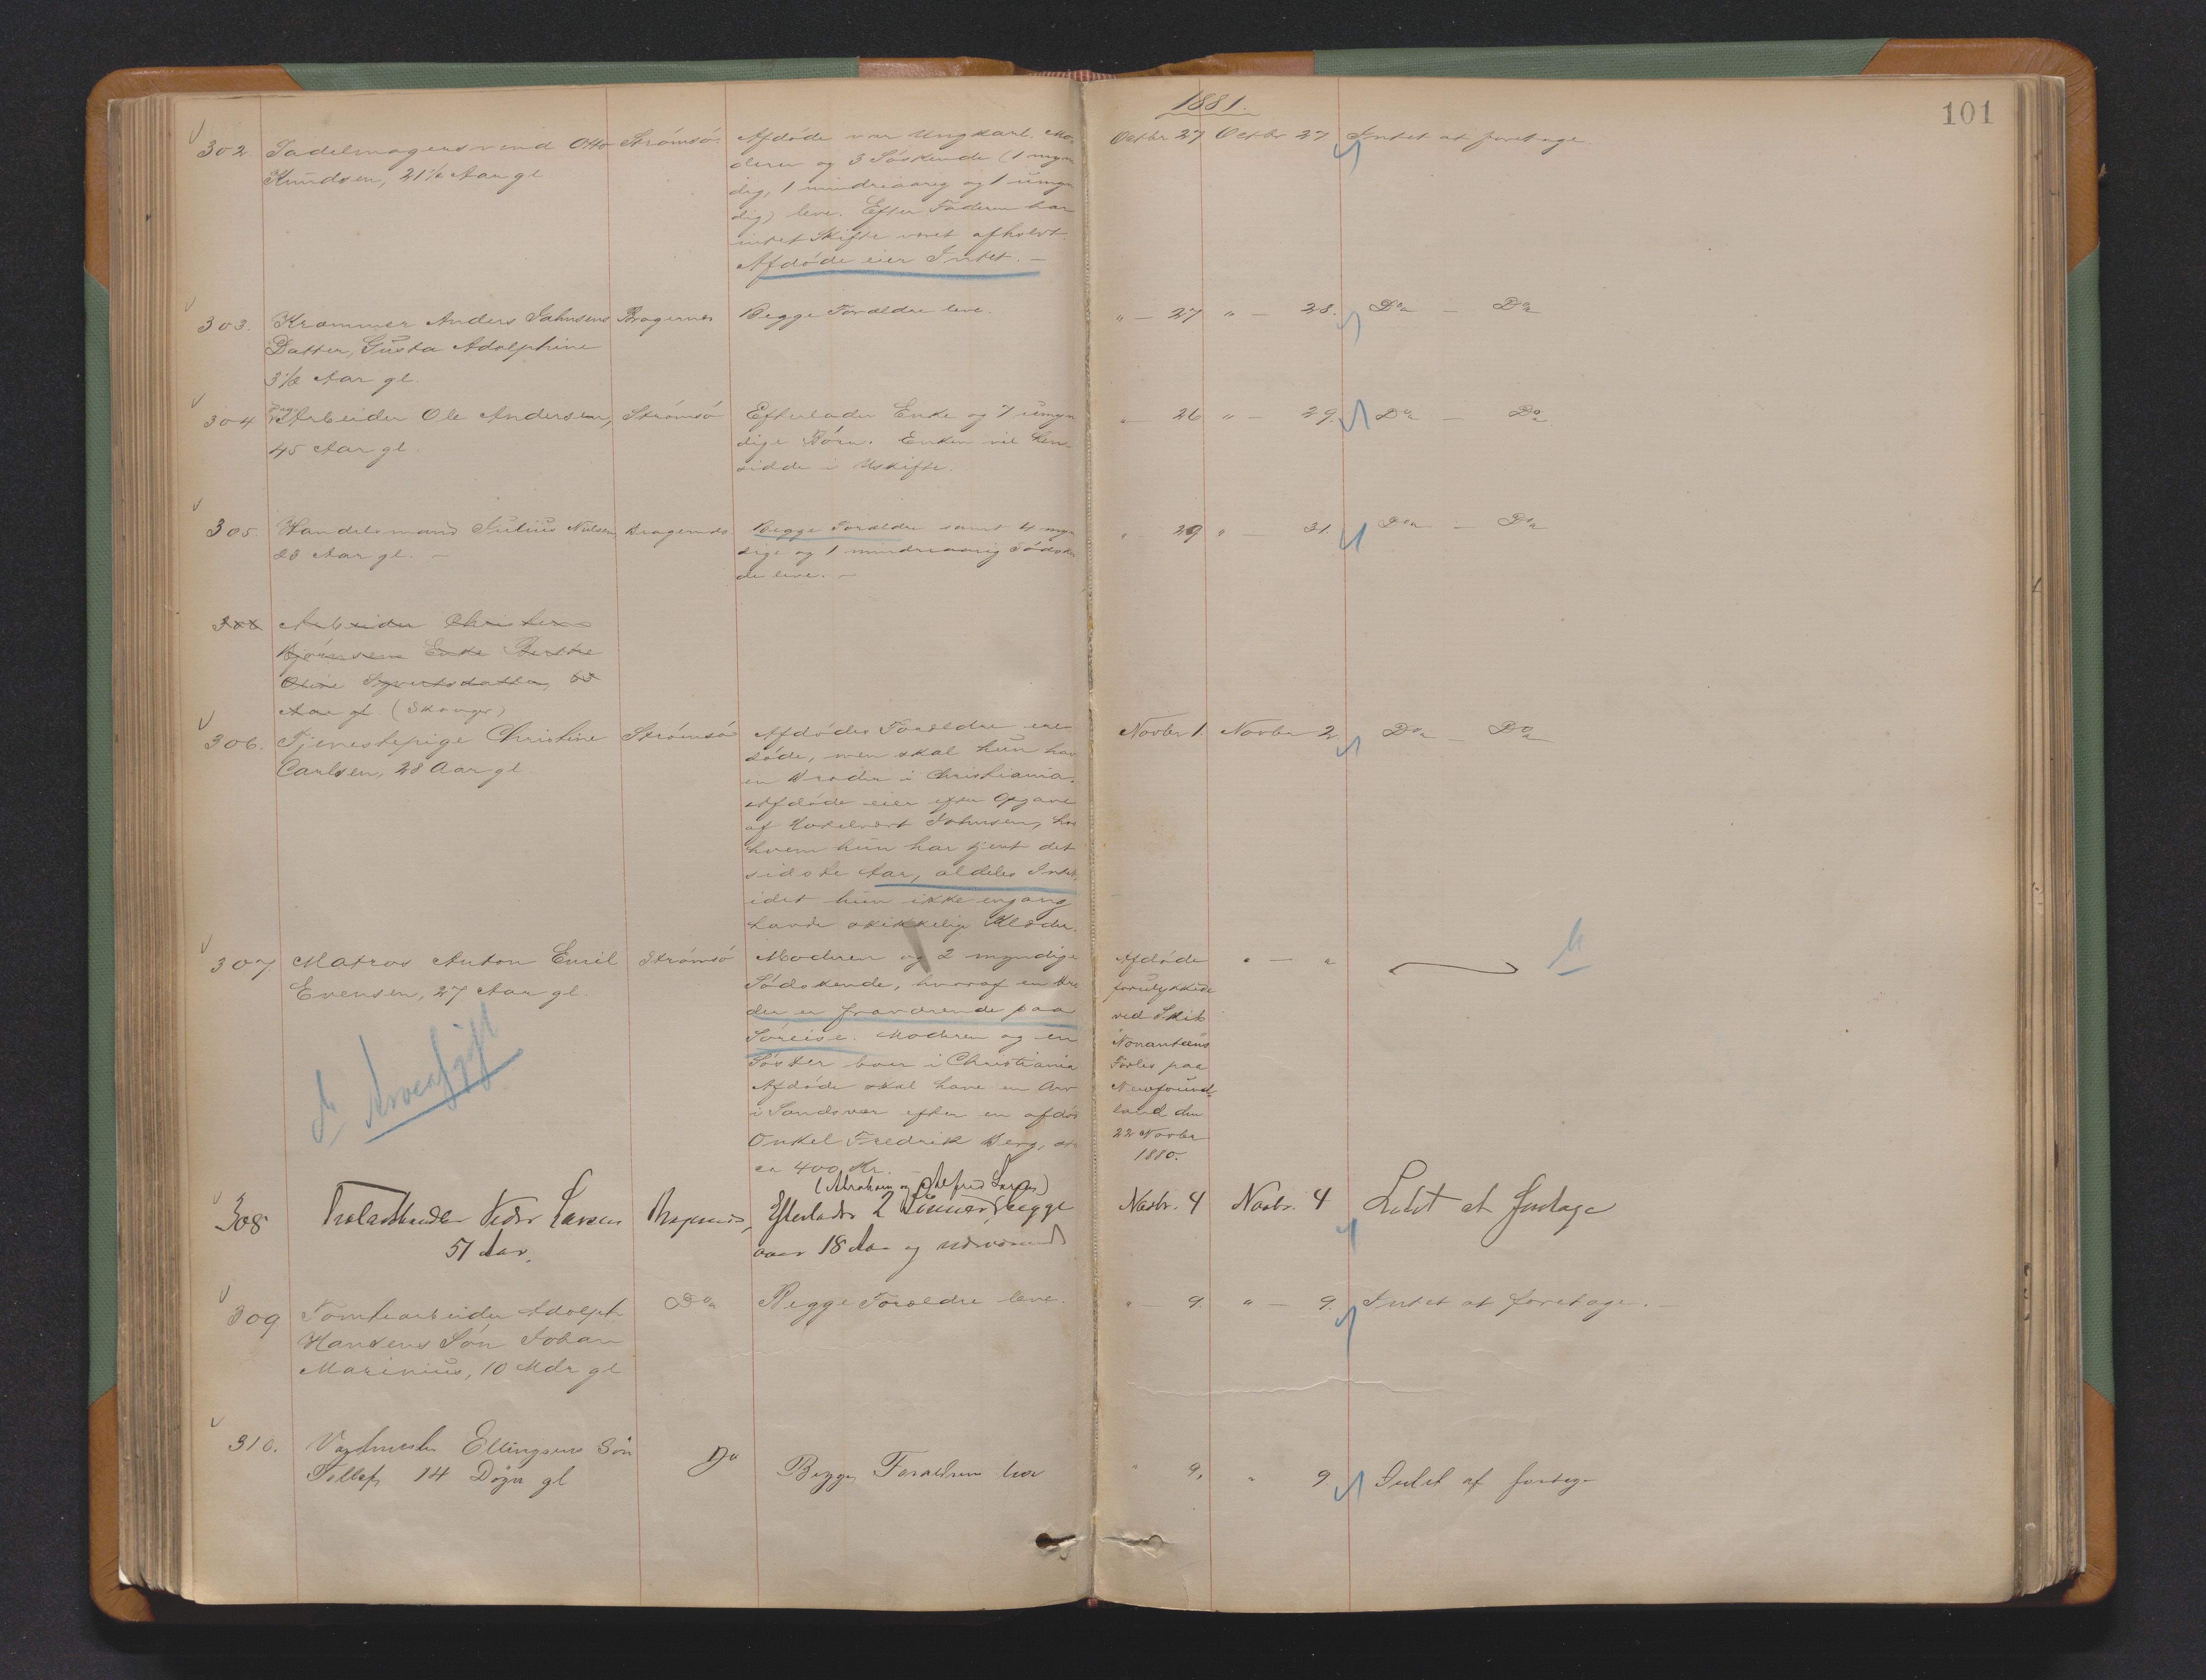 1881.
101
302. Sadelmagersvend Otto Strömsö. Afdöde var Ungkarl. Mo- Octbr 27 Octbr 27 Intet at foretage.
Knudsen, 21½ Aar gl deren og 3 Söskende (1 myn
dig, 1 mindreaarig og 1 umyn
dig) leve. Efter Faderen har
intet Skifte været afholdt.
Afdöde eier Intet. —
303. Krammer Anders Jahnsens Bragernes Begge Forældre leve. " — 27 " — 28. Do — Do
Datter, Gusta Adolphine
3½ Aar gl.
304 Arbeider Ole Andersen, Strömsö Efterlader Enke og 7 umyn " — 26 " — 29. Do — Do
45 Aar gl. dige Börn. Enken vil hen-
sidde i Uskifte.
305. Handelsmand Julius Nielsen Bragernes Begge Forældre samt 4 myn " — 29 " — 31. Do — Do
23 Aar gl. — dige og 1 mindreaarig Södsken
de leve. —
306 Arbeider Christen
Björnsens Enke Berthe
Oline Syvertsdatter,
Aar gl. (Skoger)
306. Tjenestepige Christine Strömsö Afdödes Forældre ere Novbr 1 Novbr 2 Do — Do
Carlsen, 28 Aar gl. döde, men skal hun have
en Broder i Christiania.
Afdöde eier efter Opgave
af Hotelvært Johnsen, hos
hvem hun har tjent det
sidste Aar, aldeles Intet,
idet hun ikke engang
havde skikkelige Klæder.
307. Matros Anton Emil Strömsö Moderen og 2 myndige Afdöde " — "
Evensen, 27 Aar gl. Södskende, hvoraf en Bro forulykkede
der er fraværende paa ved Skib
Söreise. Moderen og en Nonantums
Söster boer i Christiania Forlis paa
Afdöde skal have en Arv Newfound-
i Sandsvær efter en afdöd land den
Onkel Fredrik Berg, 22 Novbr
ca 400 Kr. — 1880.
Arveafgift
(Abraham og Alfred Larsen)
308 Peder Larsen Bragernes, Efterlader 2 Sönner, begge Novbr. 4 Novbr. 4 Intet at foretage
51 Aar. over 18 Aar og
309 Tomtearbeider Adolph Do Begge Forældre leve. " — 9. " — 9. Intet at foretage. —
Hansens Sön Johan
Marinius, 10 Mdr gl
310. Vagtmester Ellingsens Sön Do Begge Forældrene leve " 9. " 9 Intet at foretage
Tellef 14 Dögn gl